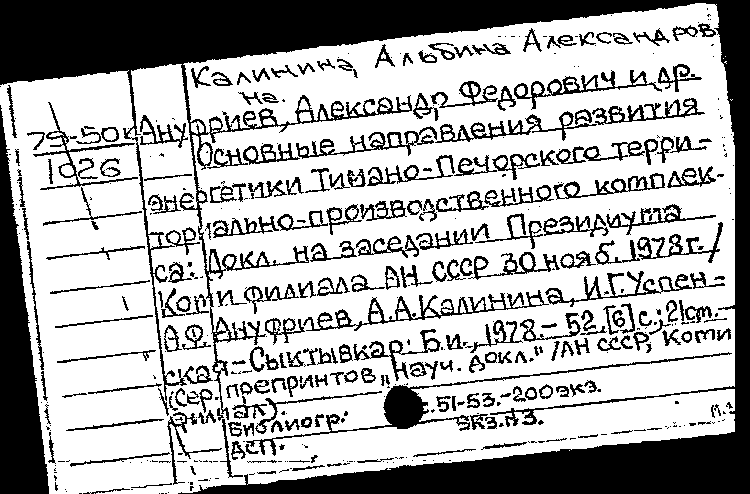 Калинина, Альбина Александров-
на.
79-50к Ануфриев, Александр Федорович и др.
1026 Основные направления развития
энергетики Тимано-Печорского терри-
ториально-производственного комплек-
са: Докл. на заседании Президиума
Коми филиала АН СССР 30 нояб. 1978г./
А.Ф. Ануфриев, А.А. Калинина, И.Г. Успен-
ская.-Сыктывкар: Б.и., 1978.- 52,[6] с.; 21см.-
(Сер. препринтов „Науч. докл." /АН СССР, Коми
филиал).
Библиогр.: с.51-53.-200экз.
ДСП. Экз.№3.